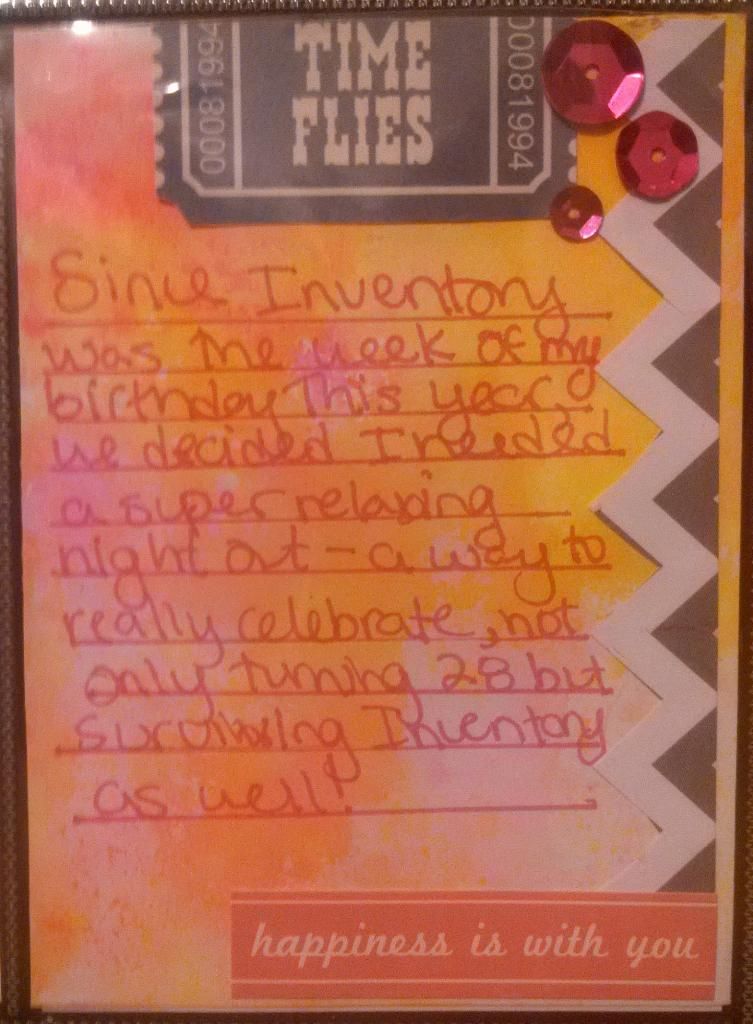 00081994
TIME
FLIES
00081994
Since Inventory
was the week of my
birthday this year,
we decided I needed
a super relaxing
night out - a way to
really celebrate, not
only turning 28 but
surviving Inventory
as well!
happiness is with you